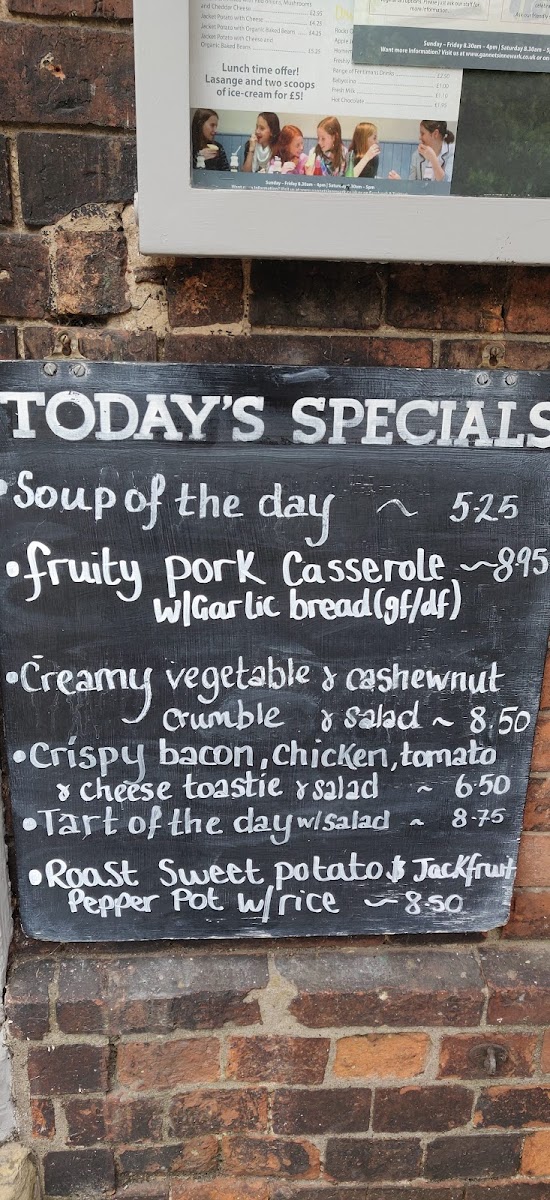 and Cheddar Cheese £5.95
Jacket Potato with Cheese £4.25
Jacket Potato with Organic Baked Beans £4.25
Jacket Potato with Cheese and
Organic Baked Beans £5.25
Lunch time offer!
Lasange and two scoops
of ice-cream for £5!
Sunday – Friday 8.30am – 4pm | Saturday 8.30am – 5pm
Range of Fentimans Drinks £2.95
Babyccino £1.00
Fresh Milk £1.10
Hot Chocolate
more information
Sunday – Friday 8.30am – 4pm | Saturday 8.30am – 5
Want more information? Visit us at www.gannetsinnewark.co.uk or on
TODAY'S SPECIALS
• Soup of the day ~ 5.25
• fruity pork Casserole ~ 8.95
w/Garlic bread (gf/df)
• Creamy vegetable & cashewnut
crumble & salad ~ 8.50
• Crispy bacon, chicken, tomato
& cheese toastie & salad ~ 6.50
• Tart of the day w/salad ~ 8.75
• Roast Sweet potato & Jackfruit
Pepper Pot w/rice ~ 8.50